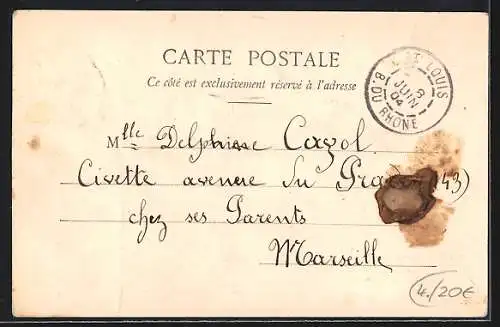 CARTE POSTALE
Ce côté est exclusivement réservé à l'adresse
ST LOUIS
6
JUIN
04
B. DU RHONE
Mlle Delphine Cayol
Civette avenue du Prado (43)
chez ses Parents
Marseille
4./20€